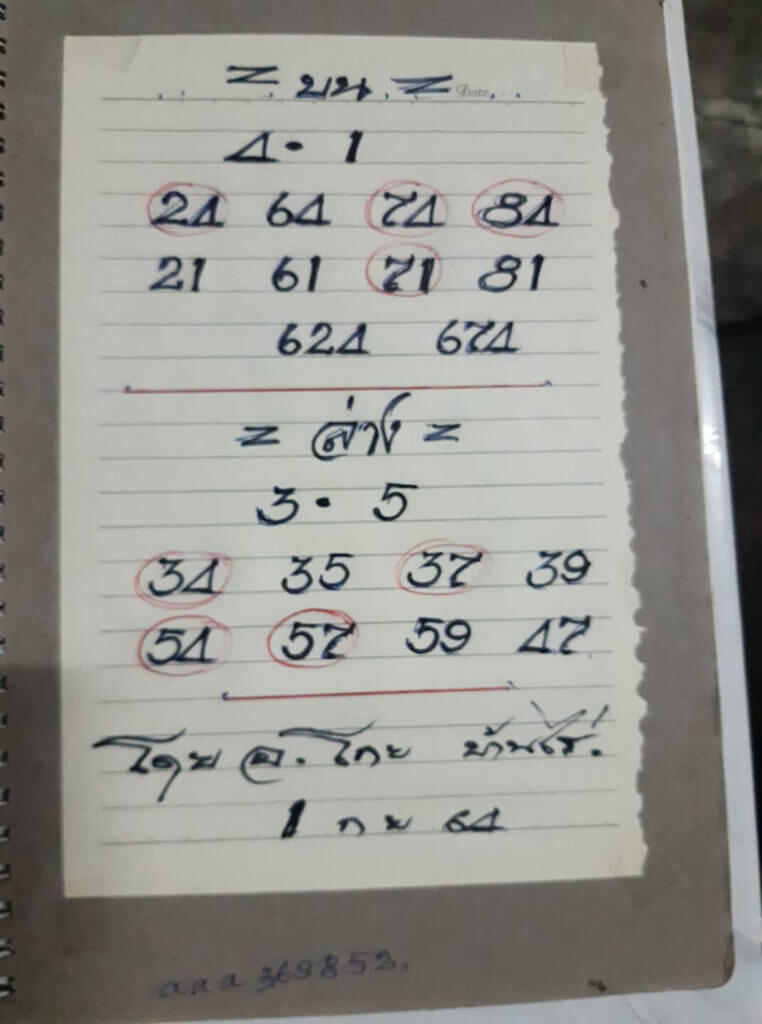 = บน = Date
4 · 1
24 64 74 84
21 61 71 81
624 674
= ล่าง =
3 · 5
34 35 37 39
54 57 59 47
โดย อ. โกย บ้านไร่.
1 กย 64
369852.